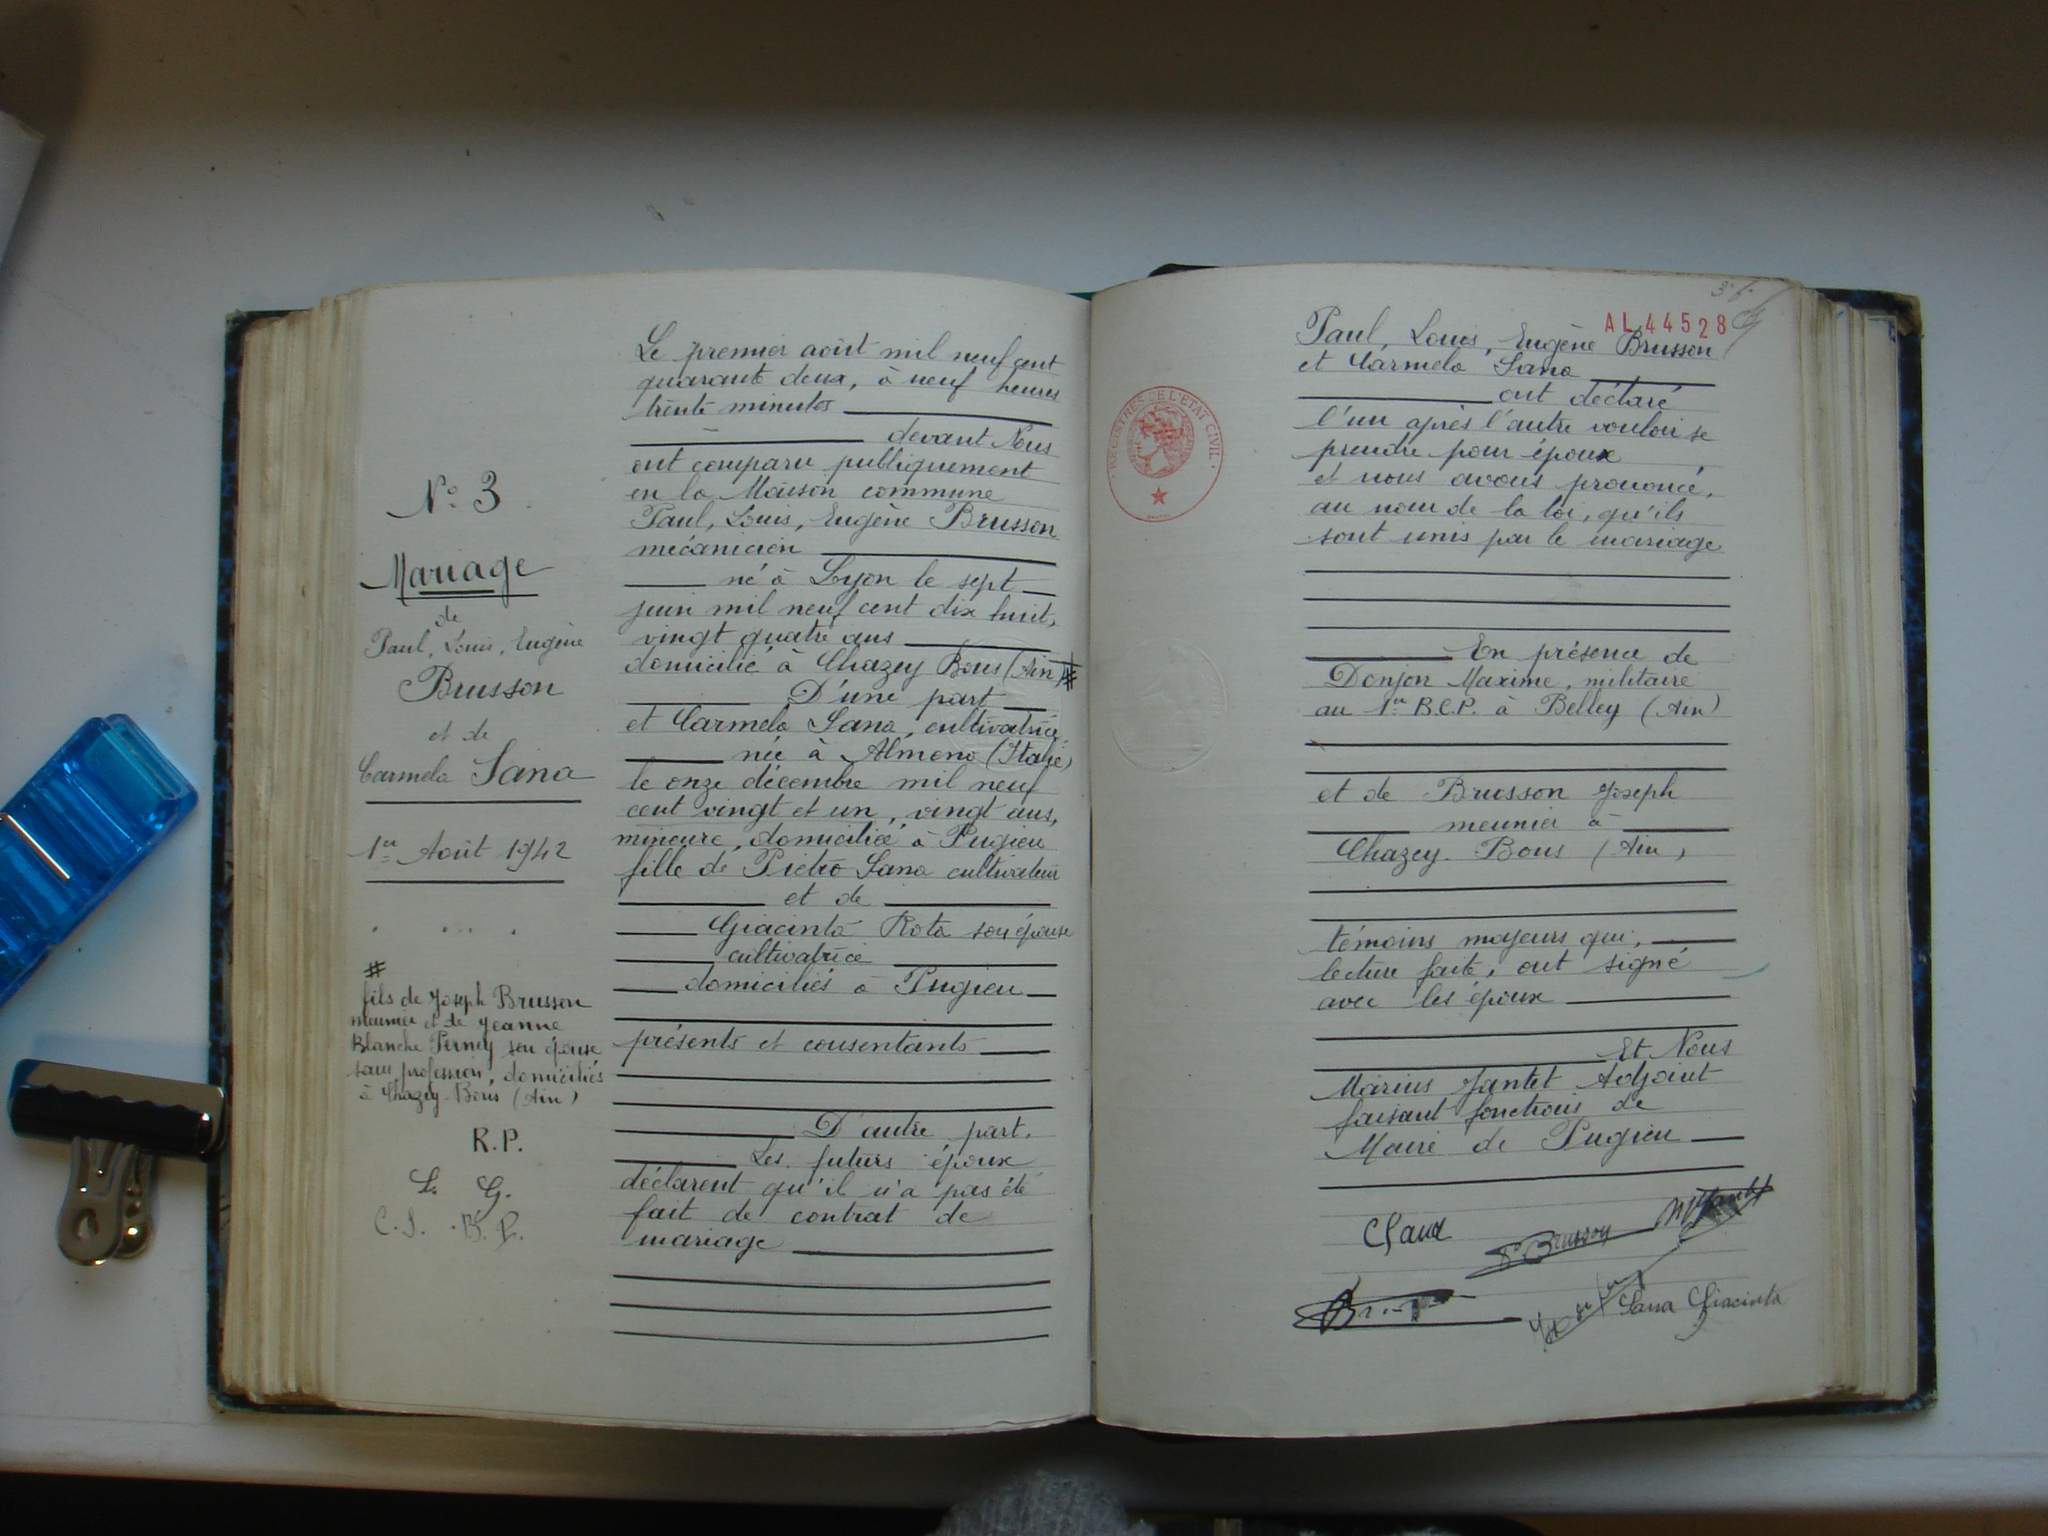 N° 3
Mariage
de
Paul, Louis, Eugène
Brusson
et de
Carmela Sana
1er Août 1942
#
fils de Joseph Brusson
meunier et de Jeanne
Blanche Perney son épouse
sans profession, domiciliés
à Chazey-Bons (Ain)
R.P.
L. G.
C.S. B.P.
Le premier août mil neuf cent
quarante deux, à neuf heures
trente minutes
devant Nous
ont comparu publiquement
en la Maison commune
Paul, Louis, Eugène Brusson
mécanicien
né à Lyon le sept
juin mil neuf cent dix huit,
vingt quatre ans
domicilié à Chazey Bons (Ain) #
D'une part
et Carmela Sana, cultivatrice
née à Almeno (Italie)
le onze décembre mil neuf
cent vingt et un, vingt ans,
mineure, domiciliée à Pugieu
fille de Pietro Sana cultivateur
et de
Giacinta Rota son épouse
cultivatrice
domiciliés à Pugieu
présents et consentants
D'autre part.
Les futurs époux
déclarent qu'il n'a pas été
fait de contrat de
mariage
AL 44528
Paul, Louis, Eugène Brusson
et Carmela Sana
ont déclaré
l'un après l'autre vouloir se
prendre pour époux
et nous avons prononcé,
au nom de la loi, qu'ils
sont unis par le mariage
REGISTRES DE L'ETAT CIVIL
En présence de
Donjon Maxime, militaire
au 1er B.C.P. à Belley (Ain)
et de Brusson Joseph
meunier à
Chazey-Bons (Ain)
témoins majeurs qui,
lecture faite, ont signé
avec les époux
Et Nous
Marius Jantet Adjoint
faisant fonctions de
Maire de Pugieu
CSana
P. Brusson
MJantet
Sana Giacinta